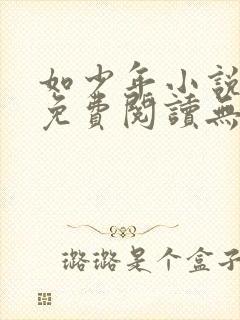 如少年小說
免費閱讀無
璐璐是个盒子